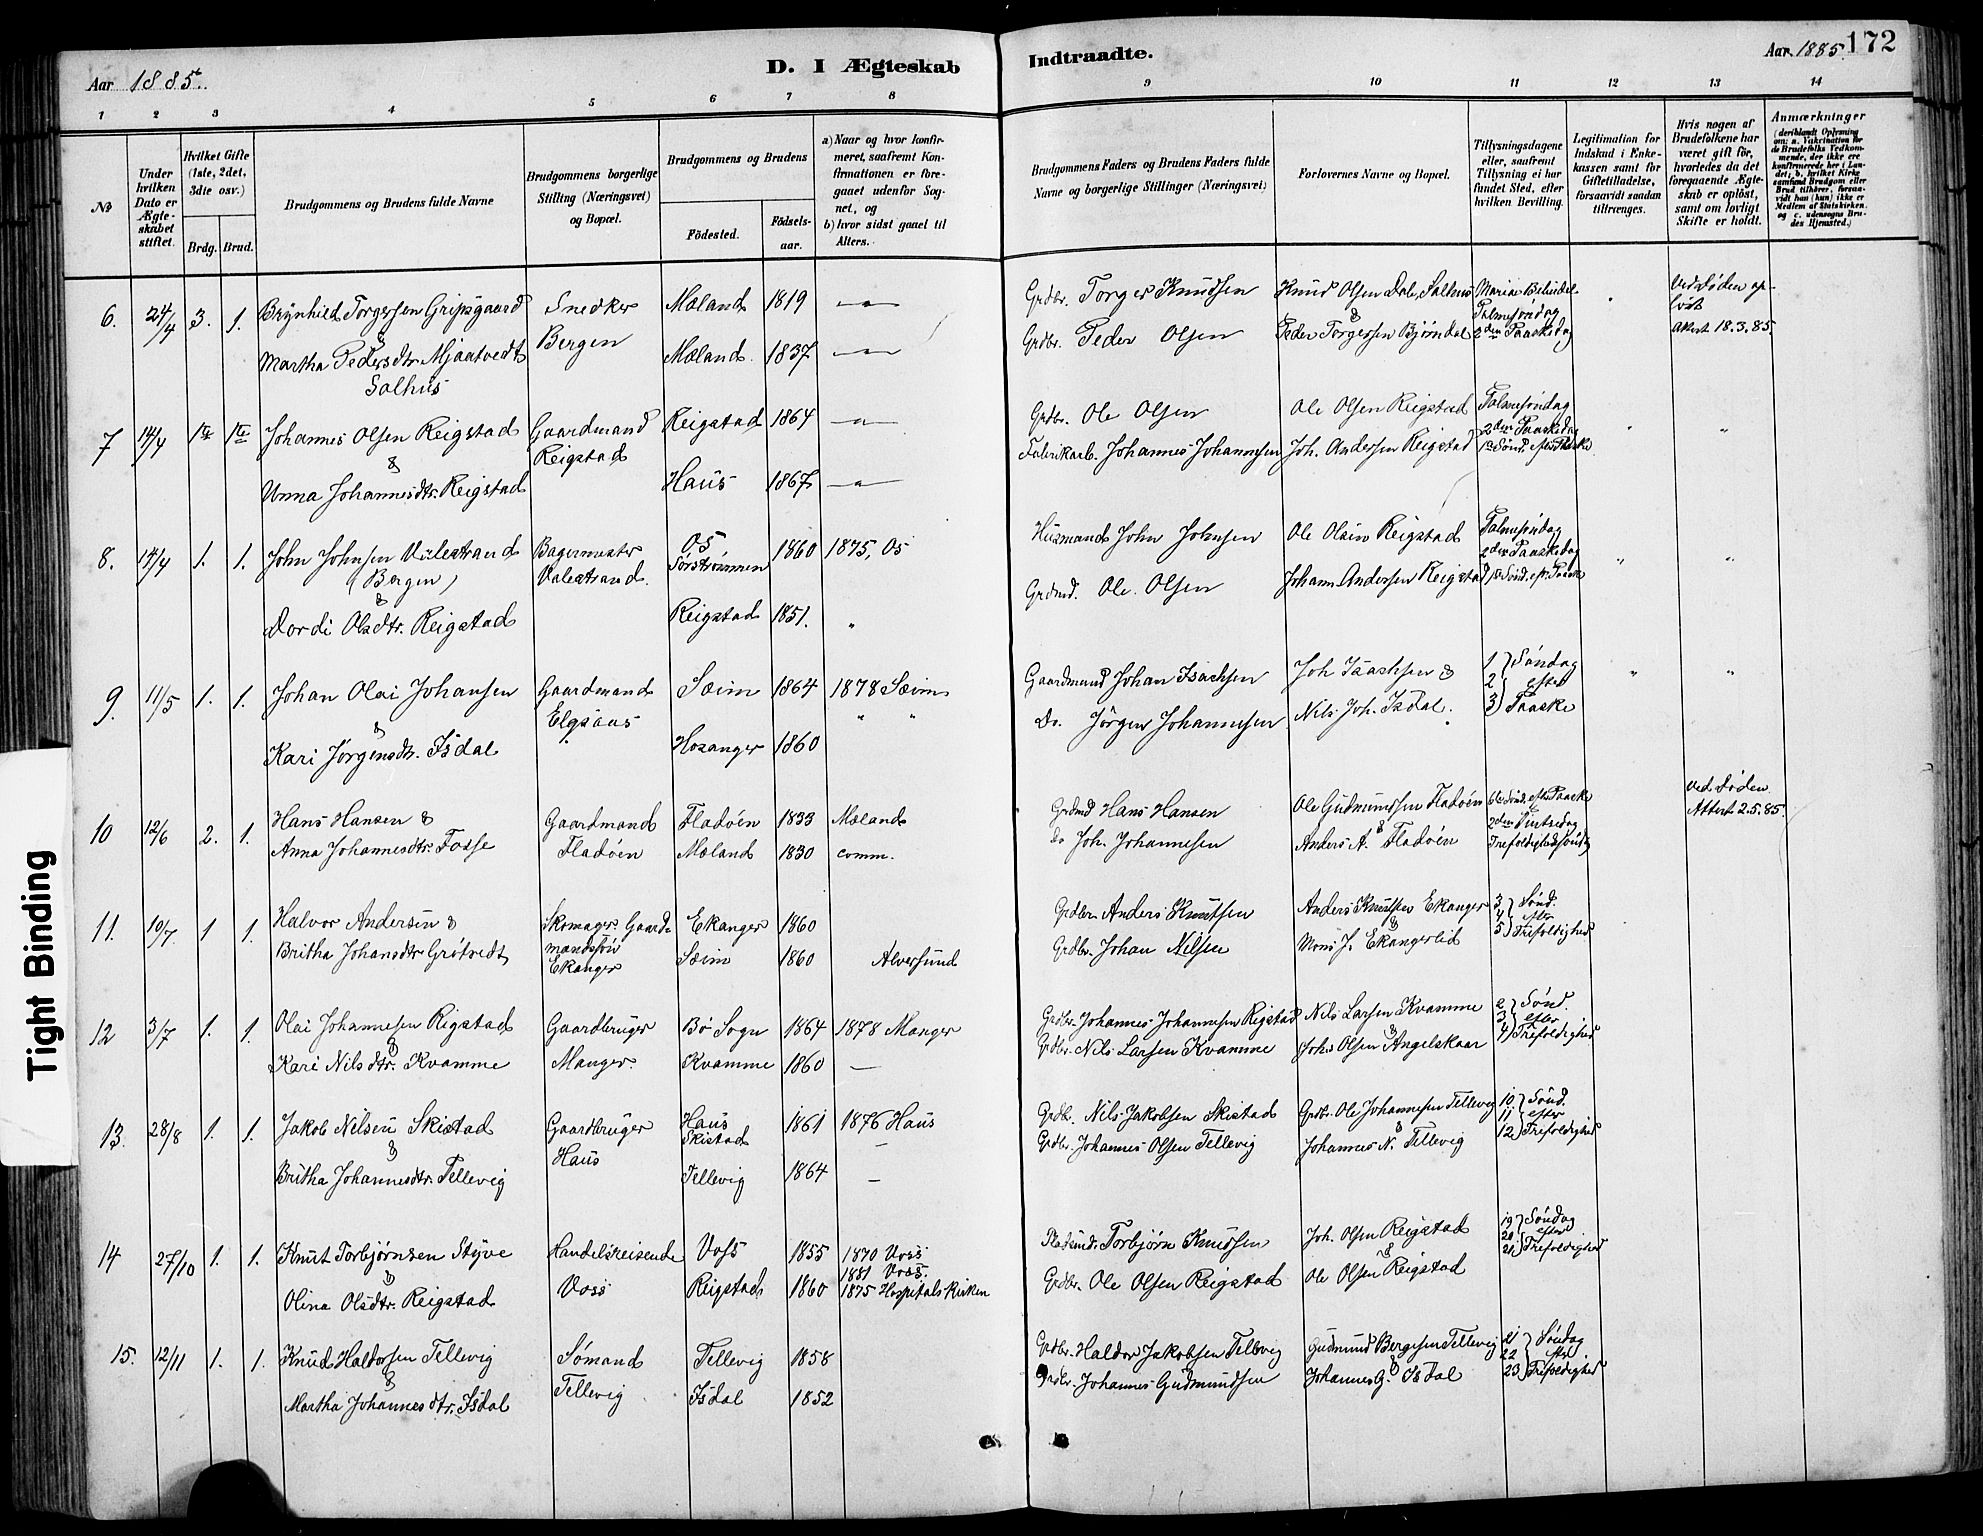 Aar 1885.
D. I Ægteskab
Indtraadte.
Aar 1885.
172
1 2 3 4 5 6 7 8 9 10 11 12 13 14
No
Under hvilken Dato er Ægteskabet stiftet.
Hvilket Gifte (1ste, 2det, 3die osv.)
Brdg. Brud.
Brudgommens og Brudens fulde Navne
Brudgommens borgerlige Stilling (Næringsvei) og Bopæl.
Brudgommens og Brudens
Fødested.
Fødselsaar.
a) Naar og hvor konfirmeret, saafremt Konfirmationen er foregaaet udenfor Sognet, og
b) hvor sidst gaael til Alters.
Brudgommens Faders og Brudens Faders fulde Navne og borgerlige Stillinger (Næringsvei)
Forlovernes Navne og Bopæl.
Tillysningsdagene eller, saafremt Tillysning ei har fundet Sted, efter hvilken Bevilling.
Legitimation for Indskud i Enkekassen samt for Giftetilladelse, forsaavidt saadan tiltrænges.
Hvis nogen af Brudefolkene har været gift før, hvorledes da det foregaaende Ægteskab er opløst, samt om lovligt Skifte er holdt.
Anmærkninger
(deriblandt Oplysning om: a. Vakcination for de Brudefolks Vedkommende, der ikke ere konfirmerede her i Landet; b. hvilket Kirkesamfund Brudgom eller Brud tilhører, forsaavidt han (hun) ikke er Medlem af Statskirken. og c. udensogns Brudes Hjemsted.)
6. 24/4 3. 1. Brynhild Torgersen Gripsgaard Snedker Mæland 1819 Grdbr. Torger Knudsen Knud Olsen Dale, Salhus Mariæ Bebudel. Ved Døden opløst
& Bergen Palmesøndag
Martha Pedersdtr. Mjaatvedt Mæland 1837 Grdbr. Peder Olsen Peder Torgersen Bjørndal 2den Paaskedag Attest 18.3.85.
Salhus
7 14/4 1te 1te Johannes Olsen Reigstad Gaardmand Reigstad 1864 Grdbr. Ole Olsen Ole Olsen Reigstad Palmesøndag
& Reigstad 2den Paaskedag
Unna Johannesdtr. Reigstad Haus 1867 Fabrikarb. Johannes Johannesen Joh. Andersen Reigstad 1ste Sønd. efter Paaske
8. 14/4 1. 1. John Johnsen Valestrand Bagermester Os Sørstrømmen 1860 1875, Os Husmand John Johnsen Ole Olsen Reigstad Palmesøndag
(Bergen) Valestrand. 2den Paaskedag
& Johan Andersen Reigstad 1ste Sønd. eft. Paaske
Dordi Olsdtr. Reigstad Reigstad 1851. " Grdmd. Ole Olsen
9. 11/5 1. 1. Johan Olai Johansen Gaardmand Sæim 1864 1878 Sæim Gaardmand Johan Isachsen Joh Isachsen & 1 2 3 } Søndag efter Paaske
& Elgsaas " "
Kari Jørgensdtr. Isdal Hosanger 1860 Do. Jørgen Johannesen Nils Joh. Isdal.
10 12/6 2. 1. Hans Hansen & Gaardmand Fladøen 1833 Mæland Grdmd Hans Hansen Ole Gudmundsen Fladøen 6te Sønd. efter Paaske Ved Døden.
Anna Johannesdtr. Fosse Fladøen Mæland 1830 comm. do Joh. Johannesen & Anders A. Fladøen 2den Pintsedag Attest 2.5.85.
Trefoldighedssøndag
11. 10/7 1 1. Halvor Andersen & Skomager. Gaardmandssøn Ekanger Ekanger 1860 Grdbr Anders Knutsen Anders Knutsen Ekanger 3 4 5 } Sønd. efter Trefoldighed
Britha Johansdtr Grøtvedt Sæim 1860 Alversund Grdbr. Johan Nilsen & Mons J. Ekangerlid
12 3/7 1. 1. Olai Johannesen Rigstad Gaardbruger Bø Sogn 1864 1878 Manger Grdbr. Johannes Johannesen Rigstad Nils Larsen Kvamme 2 3 4 } Sønd. efter Trefoldighed
& Manger.
Kari Nilsdtr. Kvamme Kvamme 1860 — Grdbr. Nils Larsen Kvamme & Johs Olsen Angelskaar
13. 28/8 1. 1. Jakob Nilsen Skistad Gaardbruger Haus Skistad 1861 1876 Haus Grdbr. Nils Jakobsen Skistad Grdbr. Ole Johannesen Tellevig 10 11 12 } Sønd. efter Trefoldighed
& Haus
Britha Johannesdtr. Tellevig Tellevig 1864 — Grdbr. Johannes Olsen Tellevig & Johannes N. Tellevig
14 27/10 1. 1. Knut Torbjørnsen Styve Handelsreisende Voss 1855 1870 Voss Torbjørn Knudsen Joh. Olsen Reigstad 19 20 21 } Søndag efter Trefoldighed
& Voss 1881 Voss.
Olina Olsdtr. Reigstad Reigstad 1860 1875 Hospitalskirken Grdbr. Ole Olsen Reigstad & Ole Olsen Reigstad
15. 12/11 1. 1. Knud Haldorsen Tellevig Sømand Tellevig 1858 Grdbr. Haldor Jakobsen Tellevig Gudmund Bergesen Tellevig 21 22 23 } Søndag efter Trefoldighed
& Tellevig
Martha Johannesdtr. Isdal Isdal 1852 Grdbr. Johannes Gudmundsen & Johannes G. Isdal
Tight Binding